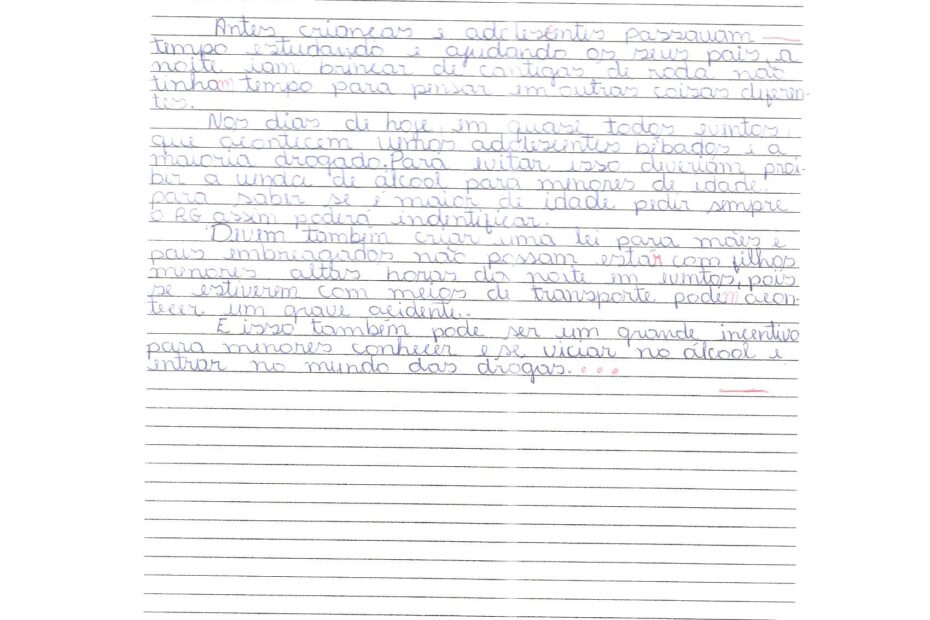 Antes crianças e adolesentes passavam
tempo estudando e ajudando os seus pais, a
noite iam brincar de cantigas de roda não
tinham tempo para pensar em outras coisas diferen-
tes.
Nos dias de hoje, em quase todos eventos,
que acontecem vemos adolescentes bêbados e a
maioria drogado. Para evitar isso deveriam proi-
bir a venda de álcool para menores de idade.
para saber se é maior de idade pedir sempre
o RG assim poderá indentificar.
Devem também criar uma lei para mães e
pais embriagados não possam estar com filhos
menores altas horas da noite em eventos, pois
se estiverem com meios de transporte podem acon-
tecer um grave acidente.
E isso também pode ser um grande incentivo
para menores conhecer e se viciar no álcool e
entrar no mundo das drogas...